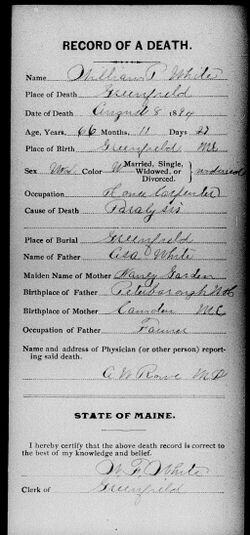 RECORD OF A DEATH.
Name William P. White
Place of Death Greenfield
Date of Death August 8 1894
Age, Years, 66 Months, 11 Days 27
Place of Birth Greenfield Me
Sex Color W Married, Single, Widowed, or Divorced. widowed
Occupation Carpenter
Cause of Death Paralysis
Place of Burial Greenfield
Name of Father Asa White
Maiden Name of Mother Nancy
Birthplace of Father Peterborough N H
Birthplace of Mother Camden Me
Occupation of Father Farmer
Name and address of Physician (or other person) reporting said death.
C. W. Rowe M D
STATE OF MAINE.
I hereby certify that the above death record is correct to
the best of my knowledge and belief.
W. F. White
Clerk of Greenfield